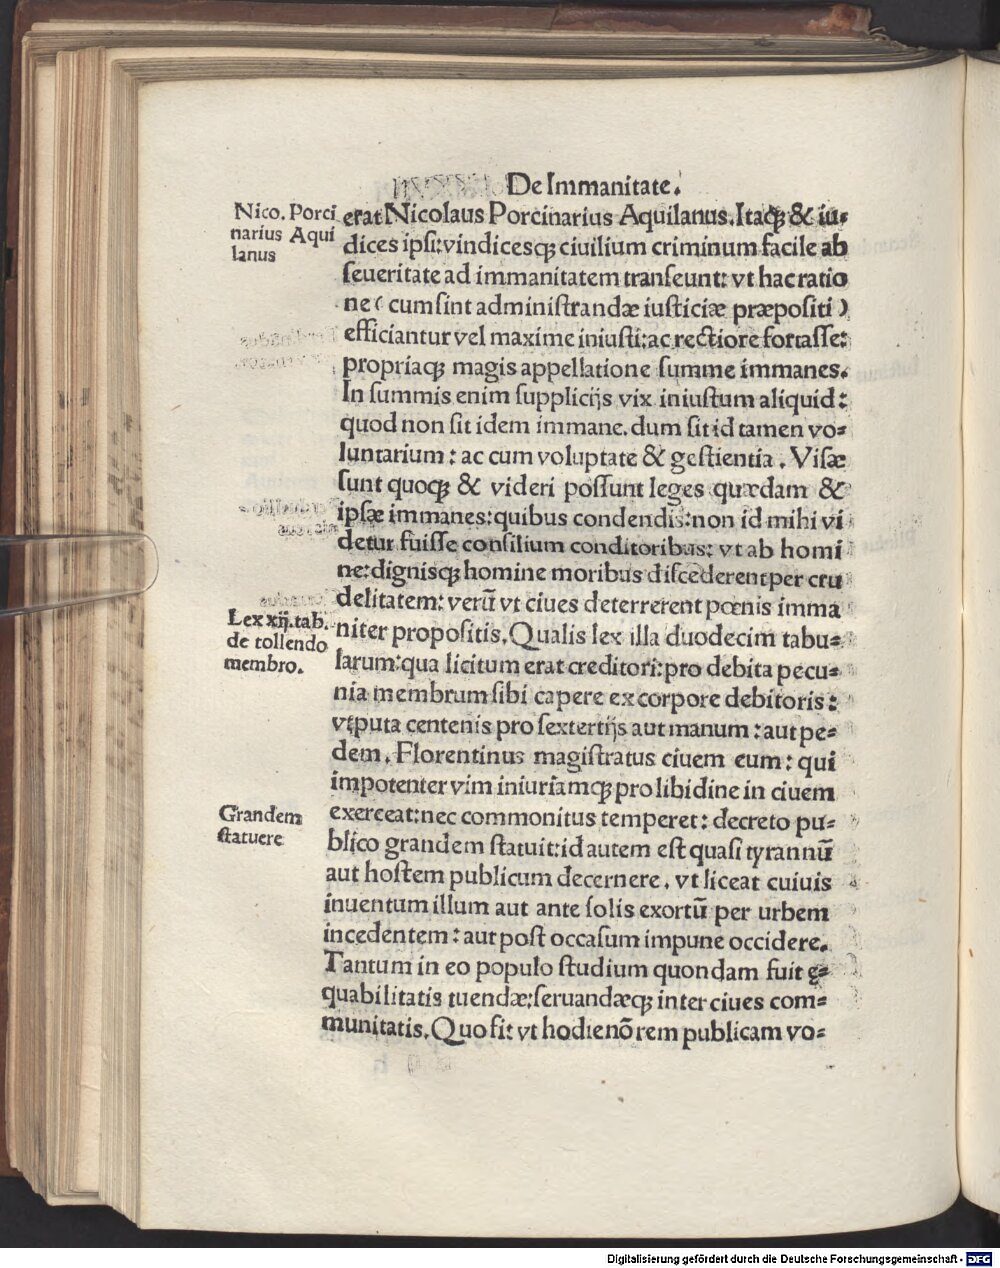 De Immanitate.
Nico. Porci
narius Aqui
lanus
erat Nicolaus Porcinarius Aquilanus. Itaqꝫ & iu⸗
dices ipsi: vindicesqꝫ ciuilium criminum facile ab
seueritate ad immanitatem transeunt: vt hac ratio
ne ( cum sint administrandæ iusticiæ præpositi )
efficiantur vel maxime iniusti: ac rectiore fortasse:
propriaqꝫ magis appellatione summe immanes.
In summis enim supplicijs vix iniustum aliquid:
quod non sit idem immane. dum sit id tamen vo⸗
luntarium : ac cum voluptate & gestientia . Visæ
sunt quoqꝫ & videri possunt leges quædam &
ipsæ immanes: quibus condendis: non id mihi vi
detur fuisse consilium conditoribus: vt ab homi
ne: dignisqꝫ homine moribus discederent per cru
delitatem: verū vt ciues deterrerent pœnis imma
Lex xij. tab.
de tollendo
membro.
niter propositis. Qualis lex illa duodecim tabu⸗
larum: qua licitum erat creditori: pro debita pecu⸗
nia membrum sibi capere ex corpore debitoris :
vtputa centenis pro sextertijs aut manum : aut pe⸗
dem . Florentinus magistratus ciuem eum : qui
impotenter vim iniuriamqꝫ pro libidine in ciuem
Grandem
statuere
exerceat: nec commonitus temperet : decreto pu⸗
blico grandem statuit: id autem est quasi tyrannū
aut hostem publicum decernere . vt liceat cuiuis
inuentum illum aut ante solis exortū per urbem
incedentem : aut post occasum impune occidere.
Tantum in eo populo studium quondam fuit ę⸗
quabilitatis tuendæ: seruandæqꝫ inter ciues com⸗
munitatis. Quo fit vt hodie nō rem publicam vo⸗
Digitalisierung gefördert durch die Deutsche Forschungsgemeinschaft - DFG